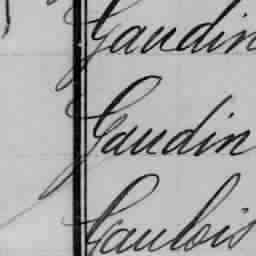 Gaudin
Gaudin
Gaulois